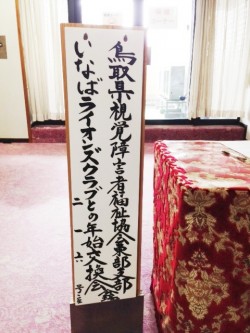 鳥取県視覚障害者福祉協会東部支部
いなばライオンズクラブとの年始交換会会場
二一六号室